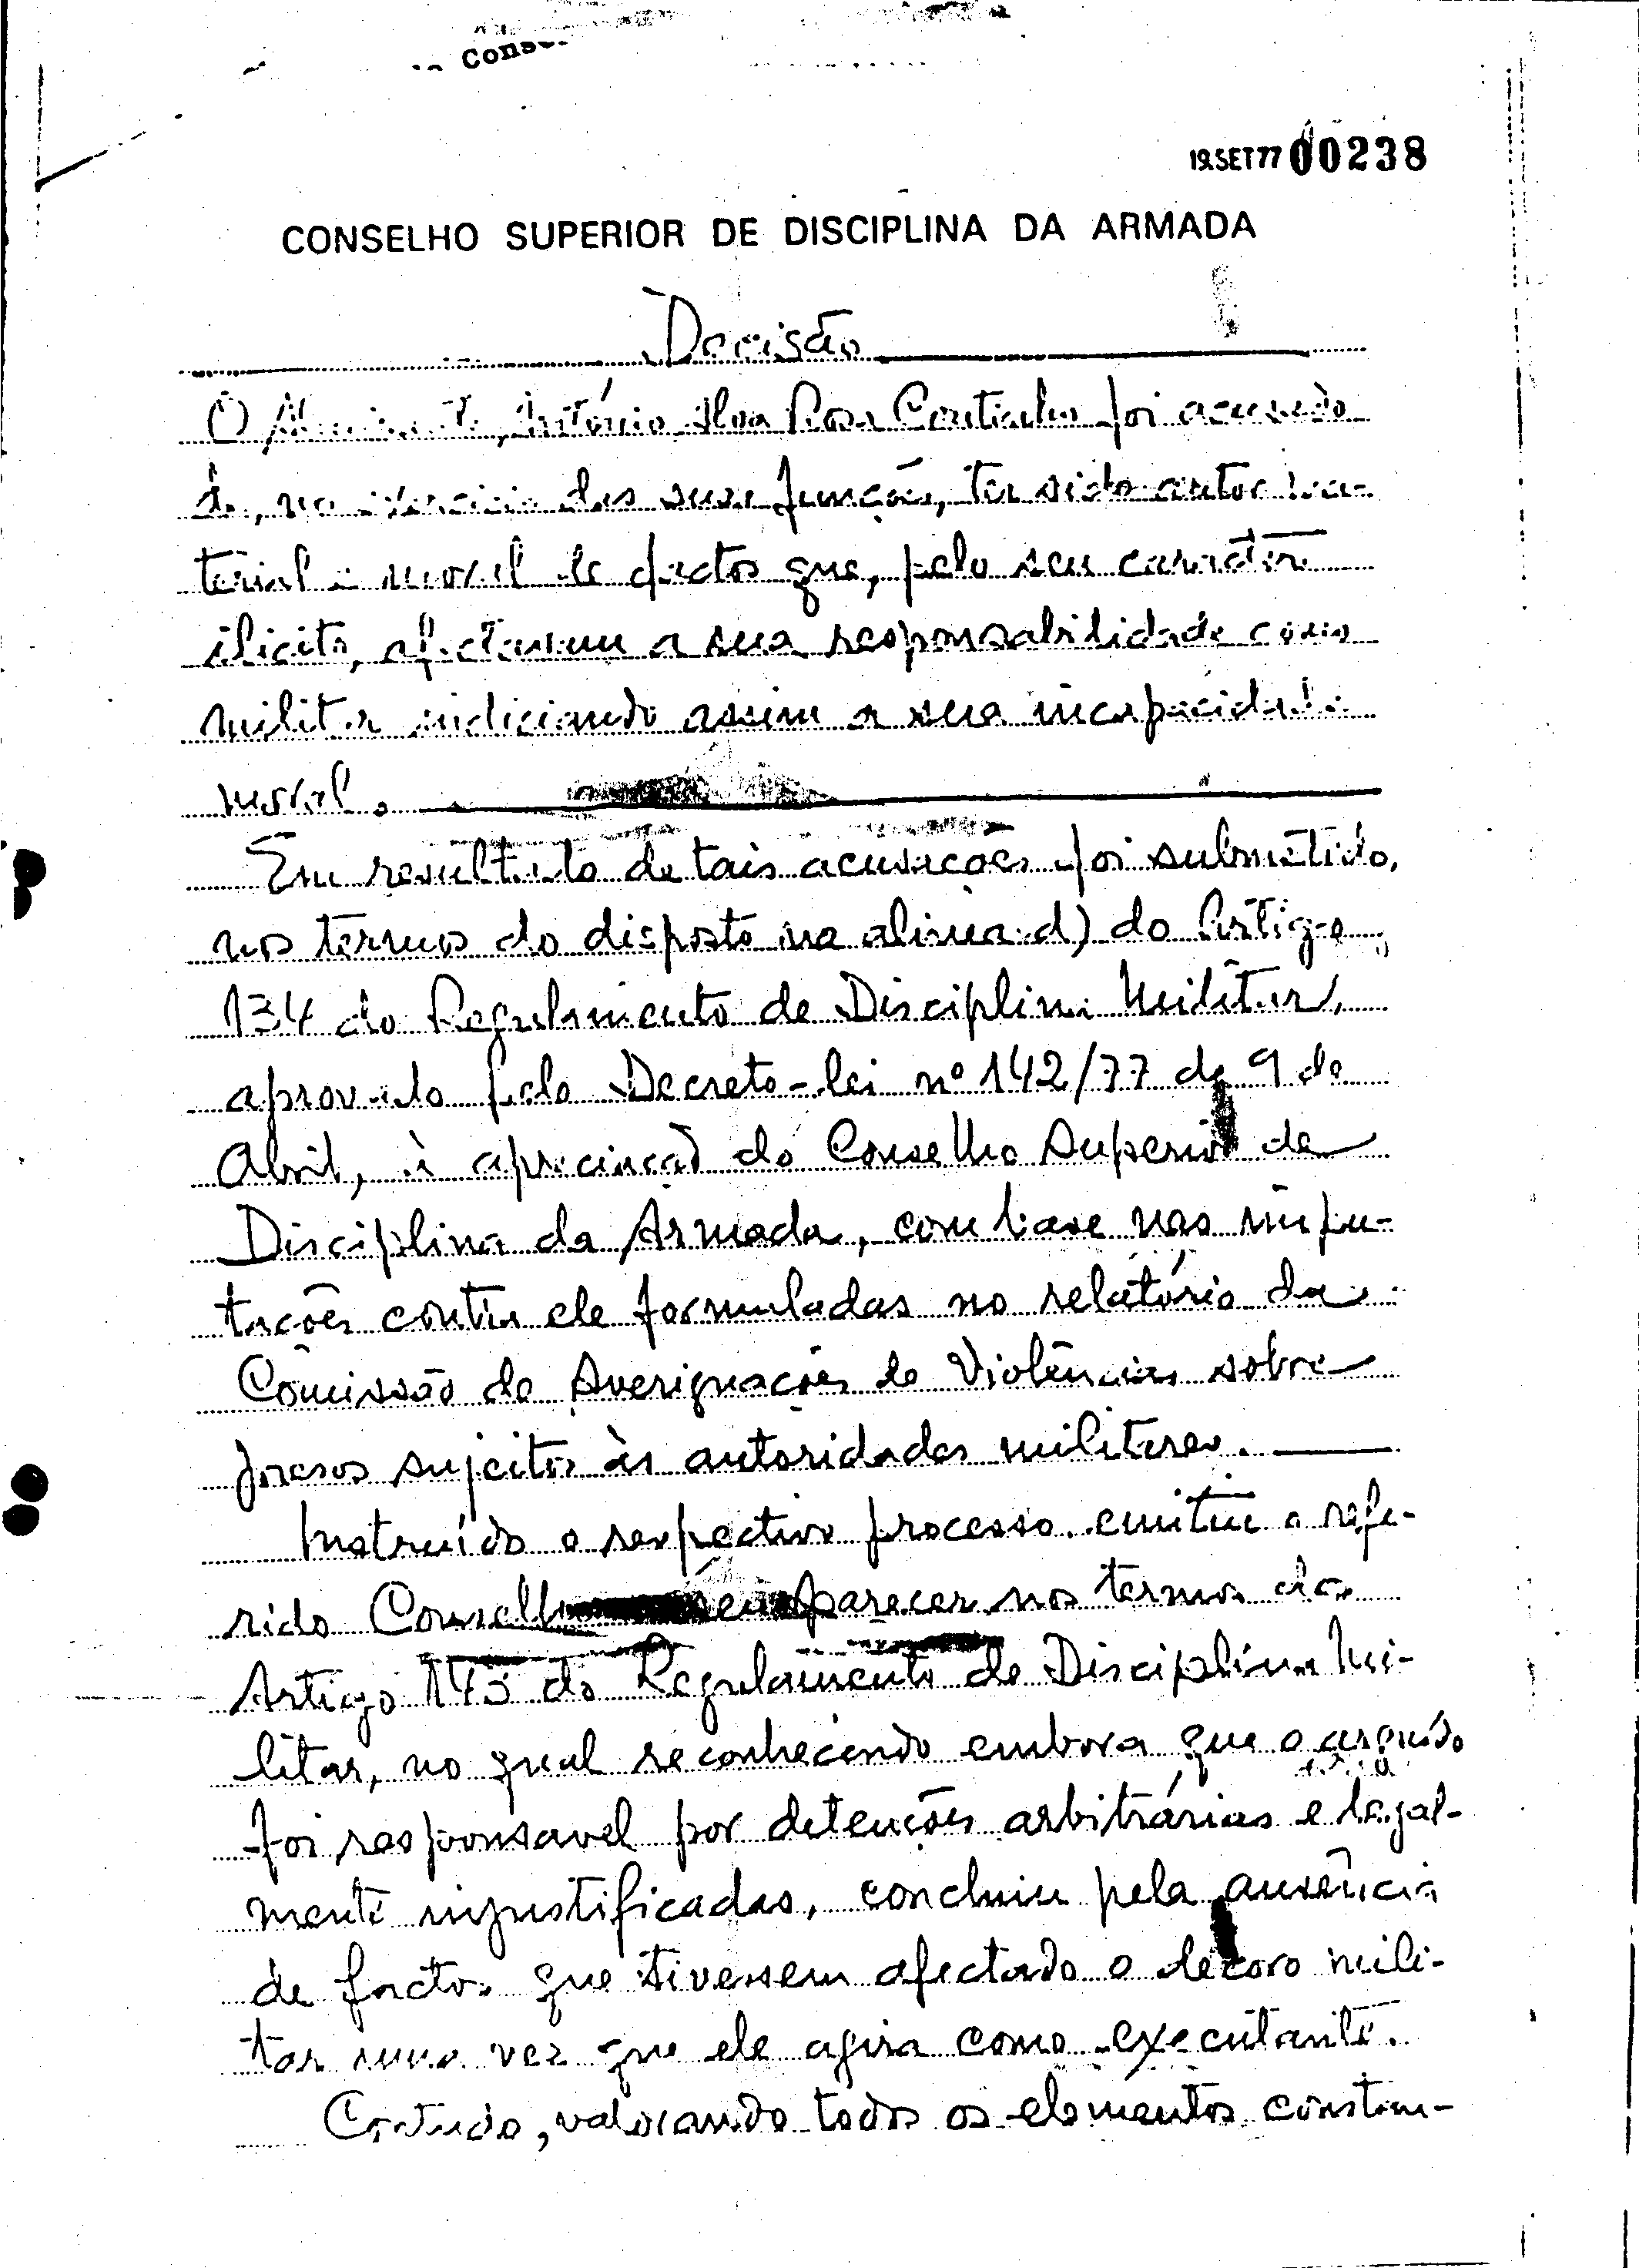 19.SET77 00238
CONSELHO SUPERIOR DE DISCIPLINA DA ARMADA
Decisão
O Almirante, António Alva Rosa Coutinho foi acusado
de, no exercício das suas funções, ter sido autor ma-
terial e moral de factos que, pelo seu carácter
ilícito, afectavam a sua responsabilidade como
militar indiciando assim a sua incapacidade
moral.
Em resultado de tais acusações foi submetido,
nos termos do disposto na alínea d) do Artigo
134 do Regulamento de Disciplina Militar,
aprovado pelo Decreto-lei nº 142/77 de 9 de
Abril, à apreciação do Conselho Superior de
Disciplina da Armada, com base nas impu-
tações contra ele formuladas no relatório da
Comissão de Averiguações de Violências sobre
presos sujeitos às autoridades militares.
Instruído o respectivo processo emitiu o refe-
rido Conselho seu parecer nos termos do
Artigo 143 do Regulamento de Disciplina Mi-
litar, no qual reconhecendo embora que o arguido
foi responsavel por detenções arbitrárias e legal-
mente injustificadas, concluiu pela ausência
de factos que tivessem afectado o decoro mili-
tar uma vez que ele agira como executante.
Contudo, valorando todos os elementos constan-